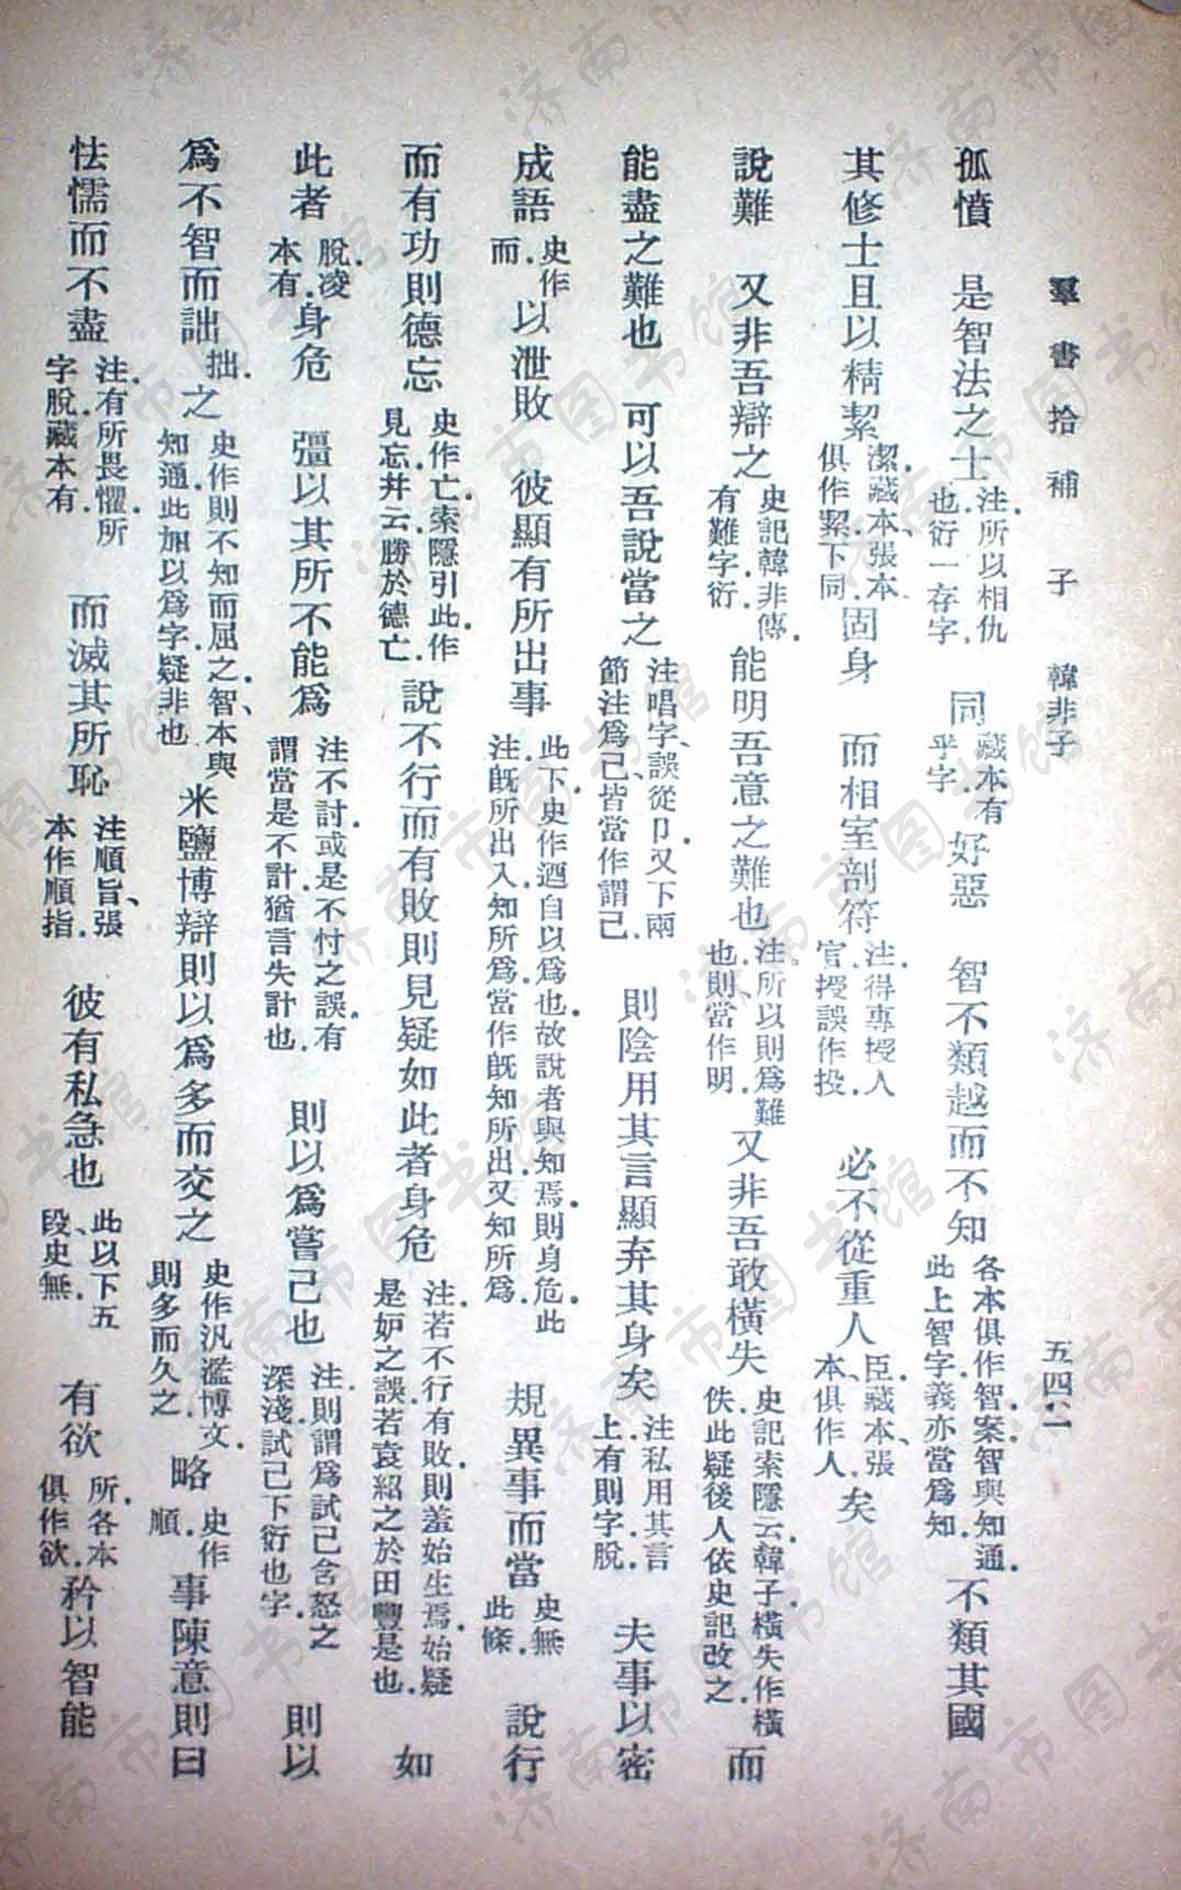 羣書拾補 子 韓非子 五四二
孤憤 是智法之士注所以相仇也衍一存字. 同藏本有乎字.好惡 智不類越而不知各本俱作智.案智與知通.此上智字.義亦當爲知. 不類其國
其修士且以精絜潔.藏本、張本俱作絜.下同.固身 而相室剖符注.得專授人官.授誤作投. 必不從重人臣.藏本、張本俱作人.矣
說難 又非吾辯之史記韓非傳.有難字.衍. 能明吾意之難也注.所以則爲難也.則當作明.又非吾敢橫失史記索隱云.韓子橫失作橫佚.此疑後人依史記改之. 而
能盡之難也 可以吾說當之注.唱字、誤從卩.又下兩節注爲己、皆當作謂己. 則陰用其言顯弃其身矣注.私用其言上有則字.脫. 夫事以密
成語史作而. 以泄敗 彼顯有所出事此下.史作迺自以爲也.故說者與知焉.則身危.此注.旣所出入.知所爲.當作旣知所出.又知所爲. 規異事而當史無此條. 說行
而有功則德忘史作亡.索隱引此.作見忘.幷云.勝於德亡. 說不行而有敗則見疑如此者身危注.若不行有敗.則羞始生焉.始疑是妒之誤.若袁紹之於田豐是也. 如
此者脫.凌本有.身危 彊以其所不能爲注.不討.或是不忖之誤.有謂當是不計.猶言失計也. 則以爲嘗己也注.則謂爲試己含怒之深淺.試己下衍也字. 則以
爲不智而詘拙.之史作則不知而屈之.智、本與知通.此加以爲字.疑非也.米鹽博辯則以爲多而交之史作汎濫博文.則多而久之. 略史作順.事陳意則曰
怯懦而不盡注.有所畏懼.所字脫.藏本有. 而滅其所恥注.順旨、張本作順指. 彼有私急也此以下五段、史無. 有欲所.各本俱作欲.矜以智能